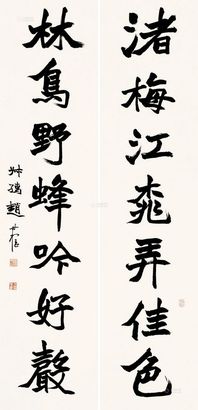 渚梅江㲠弄佳色
林鳥野蜂吟好聲